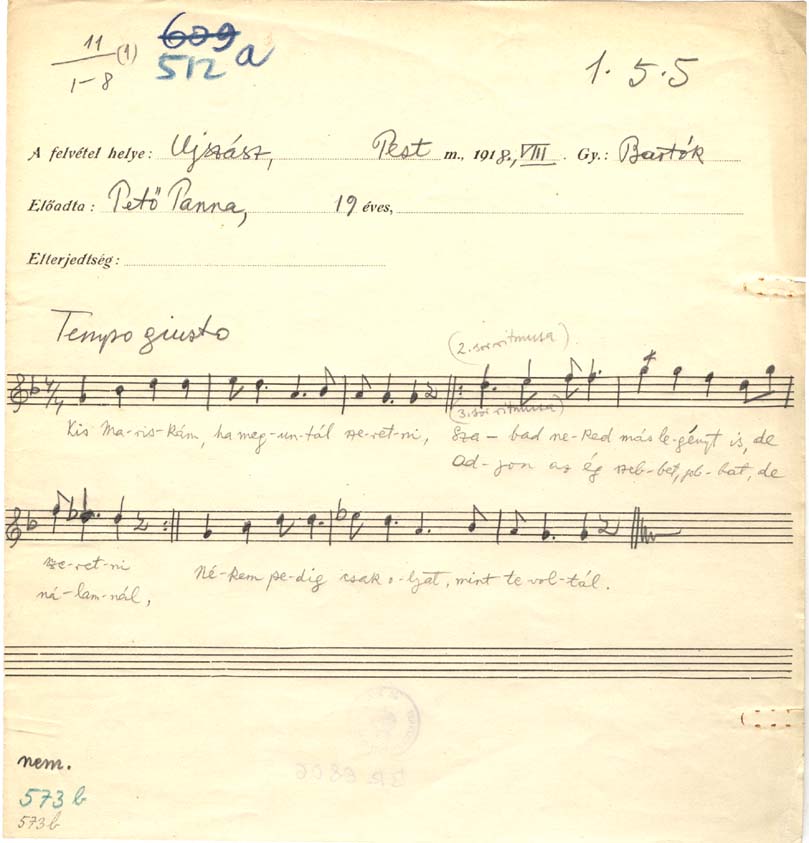 11 (1) 609
1-8 512 a 1. 5. 5
A felvétel helye: Ujszász, Pest m., 1918., VIII. Gy.: Bartók
Előadta: Pető Panna, 19 éves,
Elterjedtség:
Tempo giusto
(2. sor ritmusa)
4/4
(3. sor ritmusa)
Kis Ma-ris-kám, ha meg-un-tál sze-ret-ni, Sza-bad ne-ked más le-gényt is, de
Od-jon az ég szeb-bet, job-bat, de
sze-ret-ni Né-kem pe-dig csak o-ljat, mint te vol-tál.
ná-lam-nál,
nem.
573 b
573 b